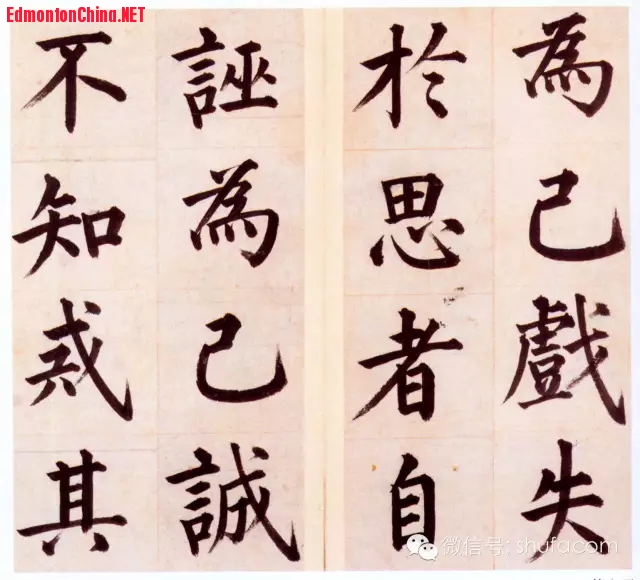 EdmontonChina.NET
為己戲失
扵思者自
誣為己誠
不知戒其
微信号: shufacom